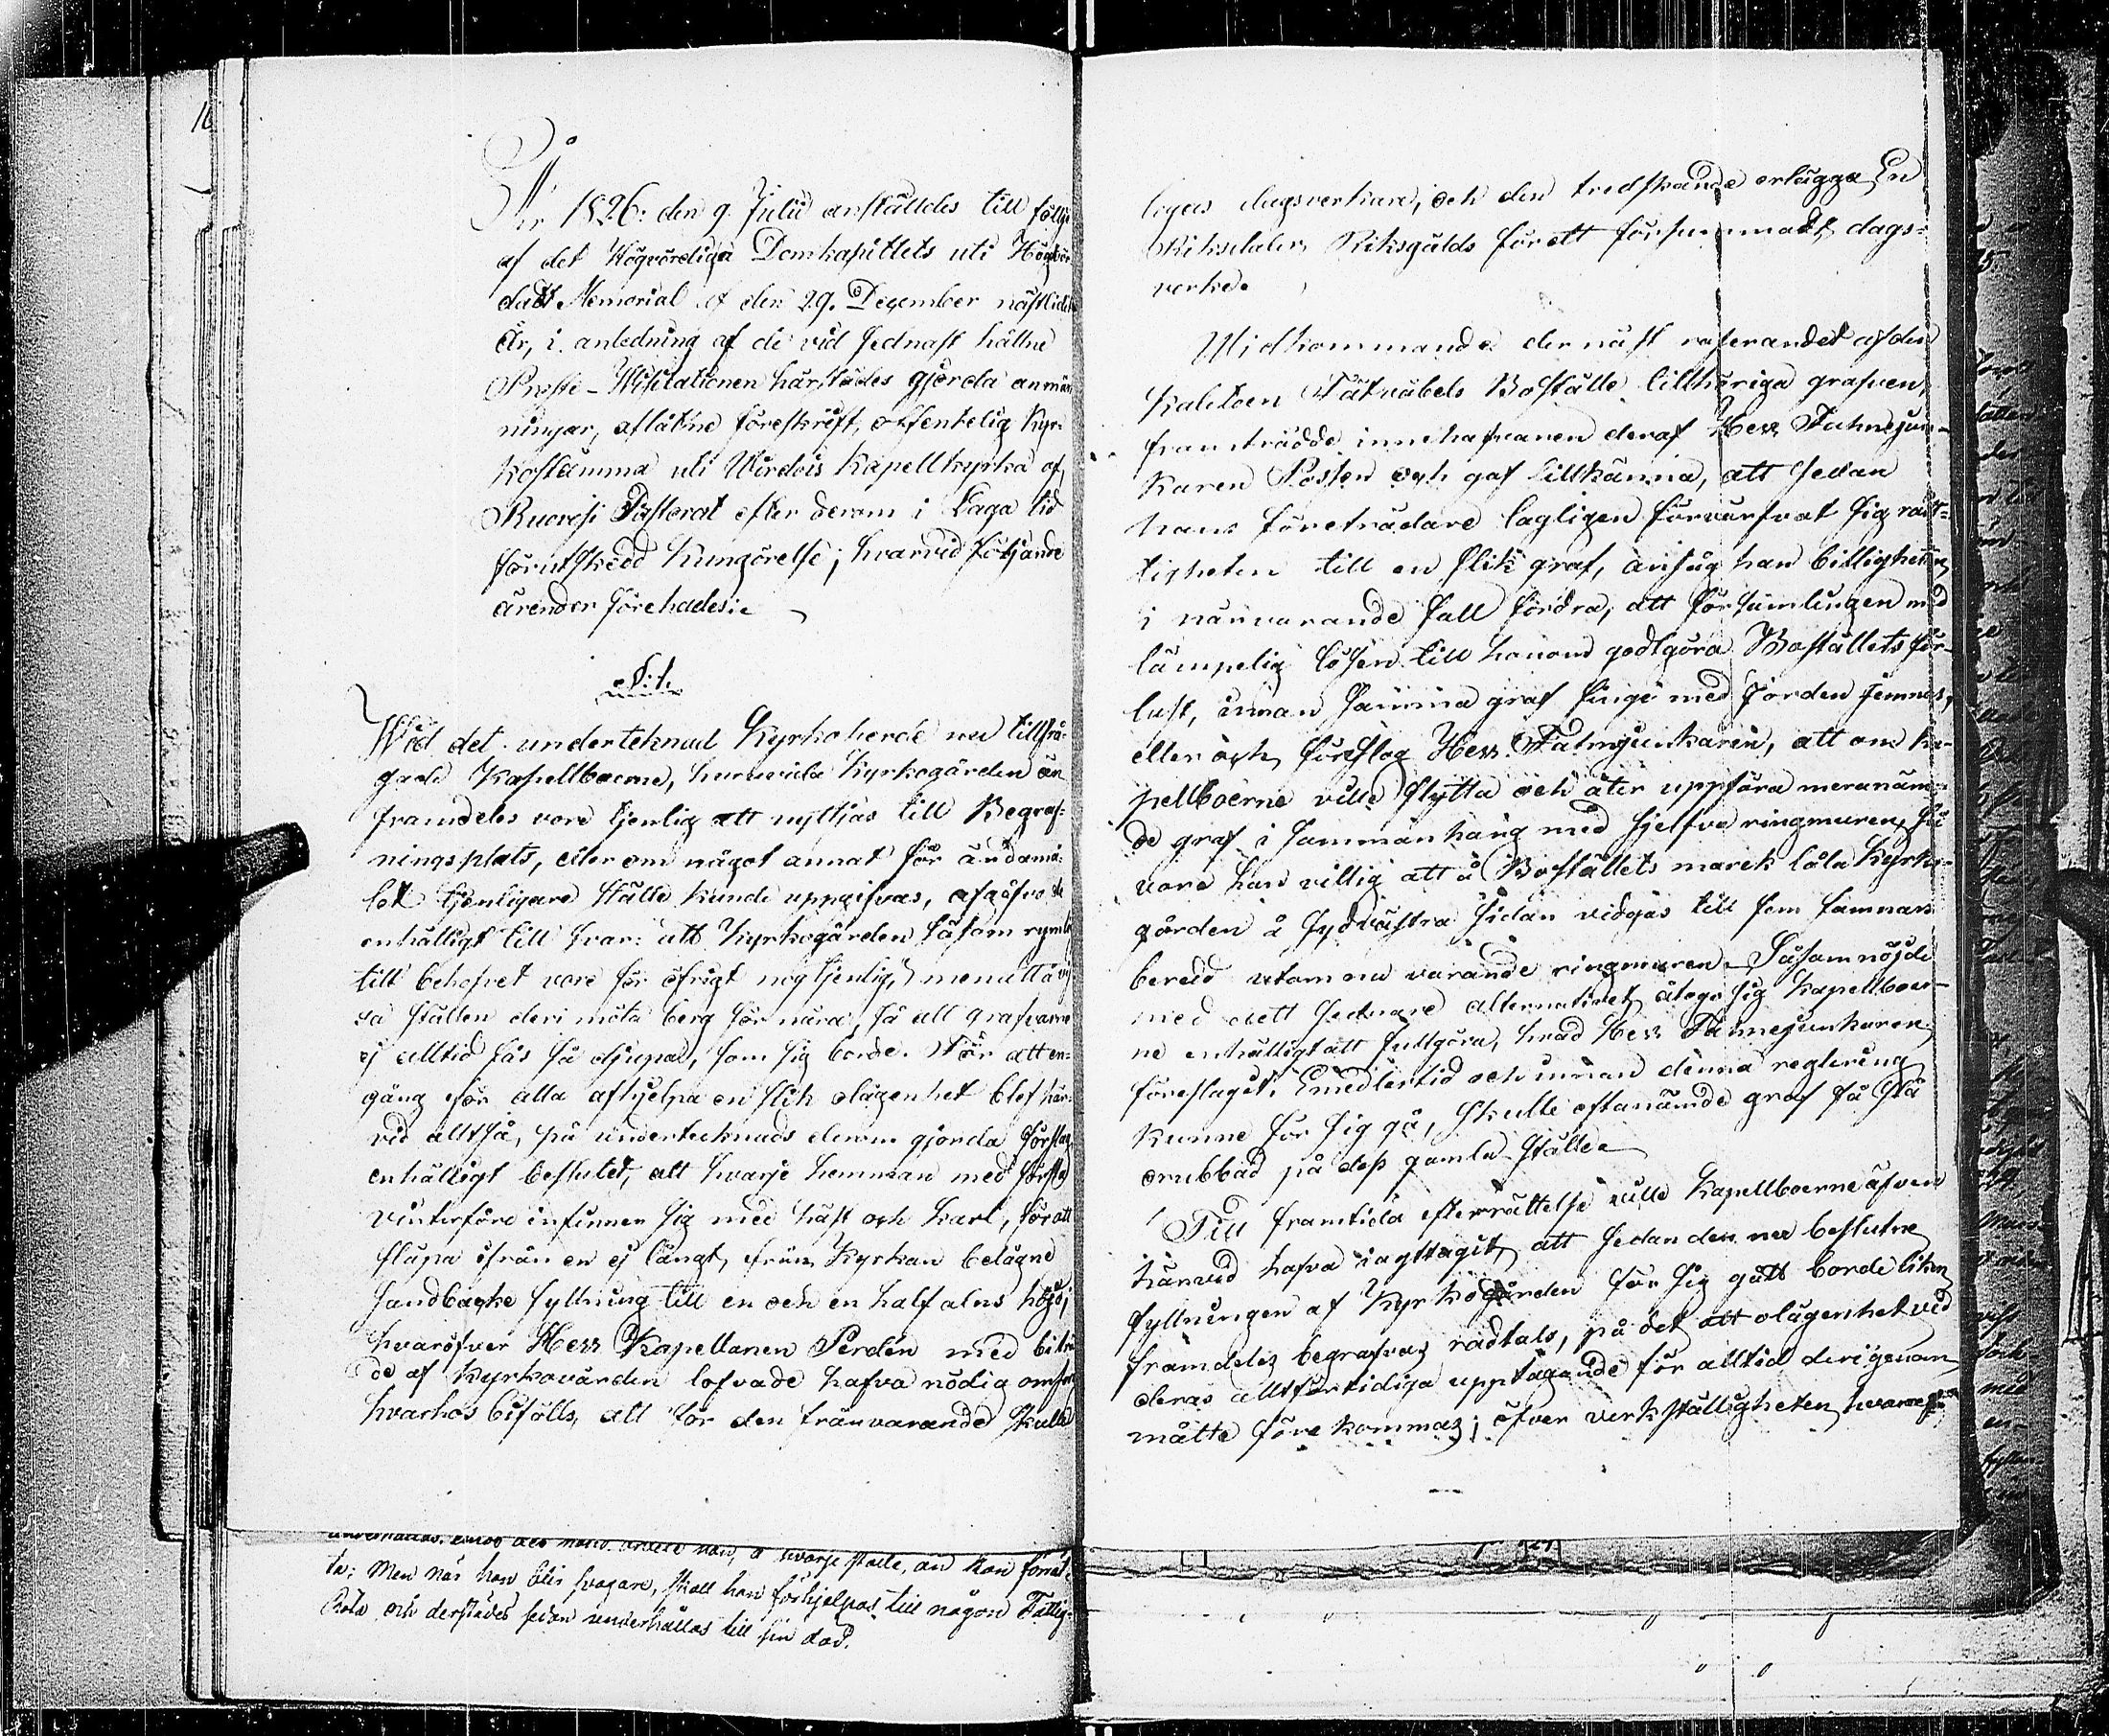 16
År 1826. den 9. Julii anställdes till följe
af det Högvördiga Domkapitlets uti Högvör
dadt Memorial af den 29. December nästlidet
År, i anledning af de vid sednast hållne
Prosts-Visitationen härstädes gjorda anmär
ningar, aflåtne föreskrift, offentelig Kyr-
kostämma uti Wirdois Kapellkyrka af
Ruovesi Pastorat efter derom i Laga tid
förutskedd Kungörelse; hvarvid följande
ärender förehades:
§. 1.
Wid det undertecknad Kyrkoherde nu tillfrå-
gade Kapellboerne, huruvida Kyrkogården än
framdeles vore tjenlig att nyttjas till Begraf-
ningsplats, eller om något annat för ändamå-
let tjenligare ställe kunde uppgifvas, afgåfvo de
enhälligt till svar: att Kyrkogården såsom rymlig
till behofvet vore för öfrigt nog tjenlig, men att å vis
sa ställen deri möta berg för nära, så att grafvarne
ej alltid fås så djupa, som sig borde. För att en-
gång för alla afhjelpa en slik olägenhet blef här
vid alltså, på undertecknads derom gjorda förslag
enhälligt beslutet, att hvarje hemman med första
vinterföre infinner sig med häst och karl, för att
släpa ifrån en ej långt från Kyrkan belägne
sandbacke fyllning till en och en half alns höjd;
hvaröfver Herr Kapellanen Perdén med biträ
de af Kyrkovärden lofvade hafva nödig omsorg
hvarhos bifölls, att för den frånvarande skulle
underhållas
å hvarje ställe, än han förrät-
ta: Men när han blir svagare, skall han förhjelpas till någon Fattig-
Rota och derstädes sedan underhållas till sin död.
legas dagsverkare, och den tredskande erlägga En
Riksdaler Riksgälds för ett försummadt dags-
verke.
Widkommande dernäst raserandet af den
Kaleton Fätväbels Boställe tillhöriga grafven,
framträdde innehafvaren deraf Herr Fahnejun-
karen Possen och gaf tillkänna, att sedan
hans företrädare lagligen förvärfvat sig rät-
tigheten till en slik graf, ansåg han billigheten
i närvarande fall fordra, att församlingen med
lämpelig lösen till honom godtgöra Boställets för-
lust, innan samma graf finge med jorden jemnas,
eller ock föreslog Herr Fahnejunkaren, att om Ka-
pellboerne ville flytta och åter uppföra meranäm-
de graf i sammanhang med sjelfva ringmuren, så
vore han villig att å Boställets mark låta Kyrko-
gården å sydvästra sidan vidgas till fem famnars
bredd utom nu varande ringmuren. Såsom nöjde
med dett sednare alternativet åtogo sig Kapellboer-
ne enhälligt att fullgöra, hvad Herr Fahnejunkaren
föreslagit. Emedlertid och innan denna reglering
kunne för sig gå, skulle oftanämde graf få stå
orubbad på dess gamla ställe.
Till framtida efterrättelse ville Kapellboerne äfven
härvid hafva iagttagit, att sedan den nu beslutne
fyllningen af Kyrkogården för sig gått borde liken
framdeles begrafvas radtals, på det att olägenhet vid
deras alltför tidiga upptagande för alltid derigenom
måtte förekommas; öfver verkställigheten hvaraf